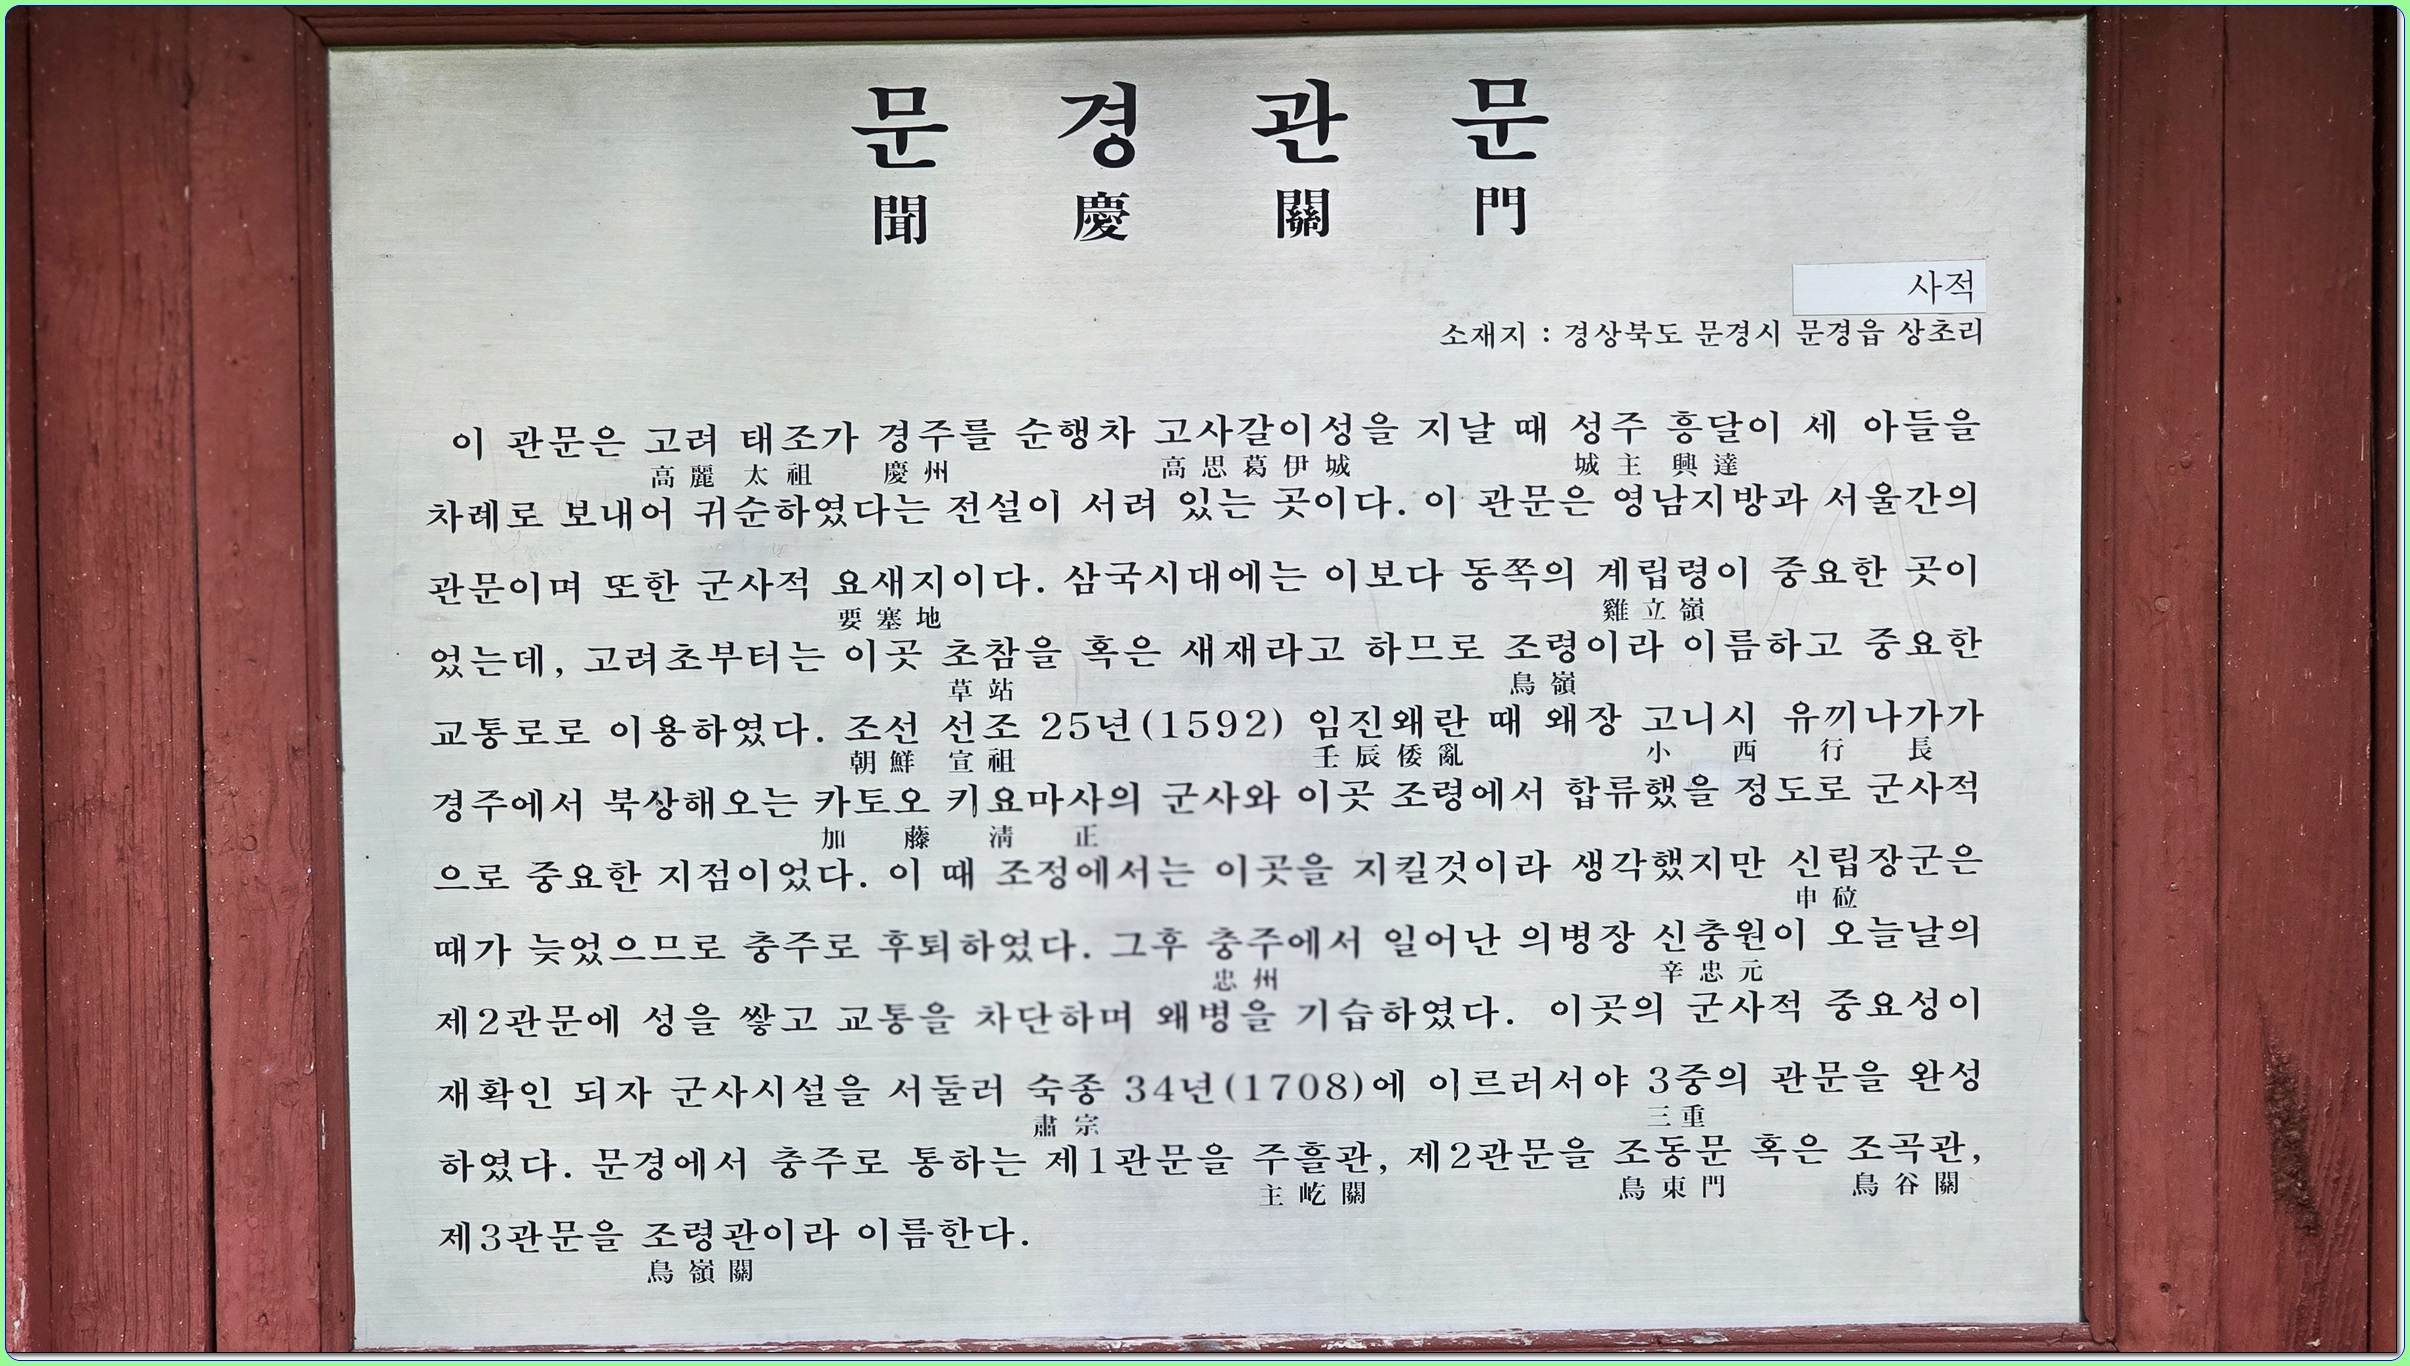 문 경 관 문
聞 慶 關 門
사적
소재지 : 경상북도 문경시 문경읍 상초리
이 관문은 고려 태조가 경주를 순행차 고사갈이성을 지날 때 성주 흥달이 세 아들을
高麗 太祖 慶州 高思葛伊城 城主 興達
차례로 보내어 귀순하였다는 전설이 서려 있는 곳이다. 이 관문은 영남지방과 서울간의
관문이며 또한 군사적 요새지이다. 삼국시대에는 이보다 동쪽의 계립령이 중요한 곳이
要塞地 雞立嶺
었는데, 고려초부터는 이곳 초참을 혹은 새재라고 하므로 조령이라 이름하고 중요한
草站 鳥嶺
교통로로 이용하였다. 조선 선조 25년(1592) 임진왜란 때 왜장 고니시 유끼나가가
朝鮮 宣祖 壬辰倭亂 小西行長
경주에서 북상해오는 카토오 키요마사의 군사와 이곳 조령에서 합류했을 정도로 군사적
加藤淸正
으로 중요한 지점이었다. 이 때 조정에서는 이곳을 지킬것이라 생각했지만 신립장군은
申砬
때가 늦었으므로 충주로 후퇴하였다. 그후 충주에서 일어난 의병장 신충원이 오늘날의
忠州 辛忠元
제2관문에 성을 쌓고 교통을 차단하며 왜병을 기습하였다. 이곳의 군사적 중요성이
재확인 되자 군사시설을 서둘러 숙종 34년(1708)에 이르러서야 3중의 관문을 완성
肅宗 三重
하였다. 문경에서 충주로 통하는 제1관문을 주흘관, 제2관문을 조동문 혹은 조곡관,
主屹關 鳥東門 鳥谷關
제3관문을 조령관이라 이름한다.
鳥嶺關